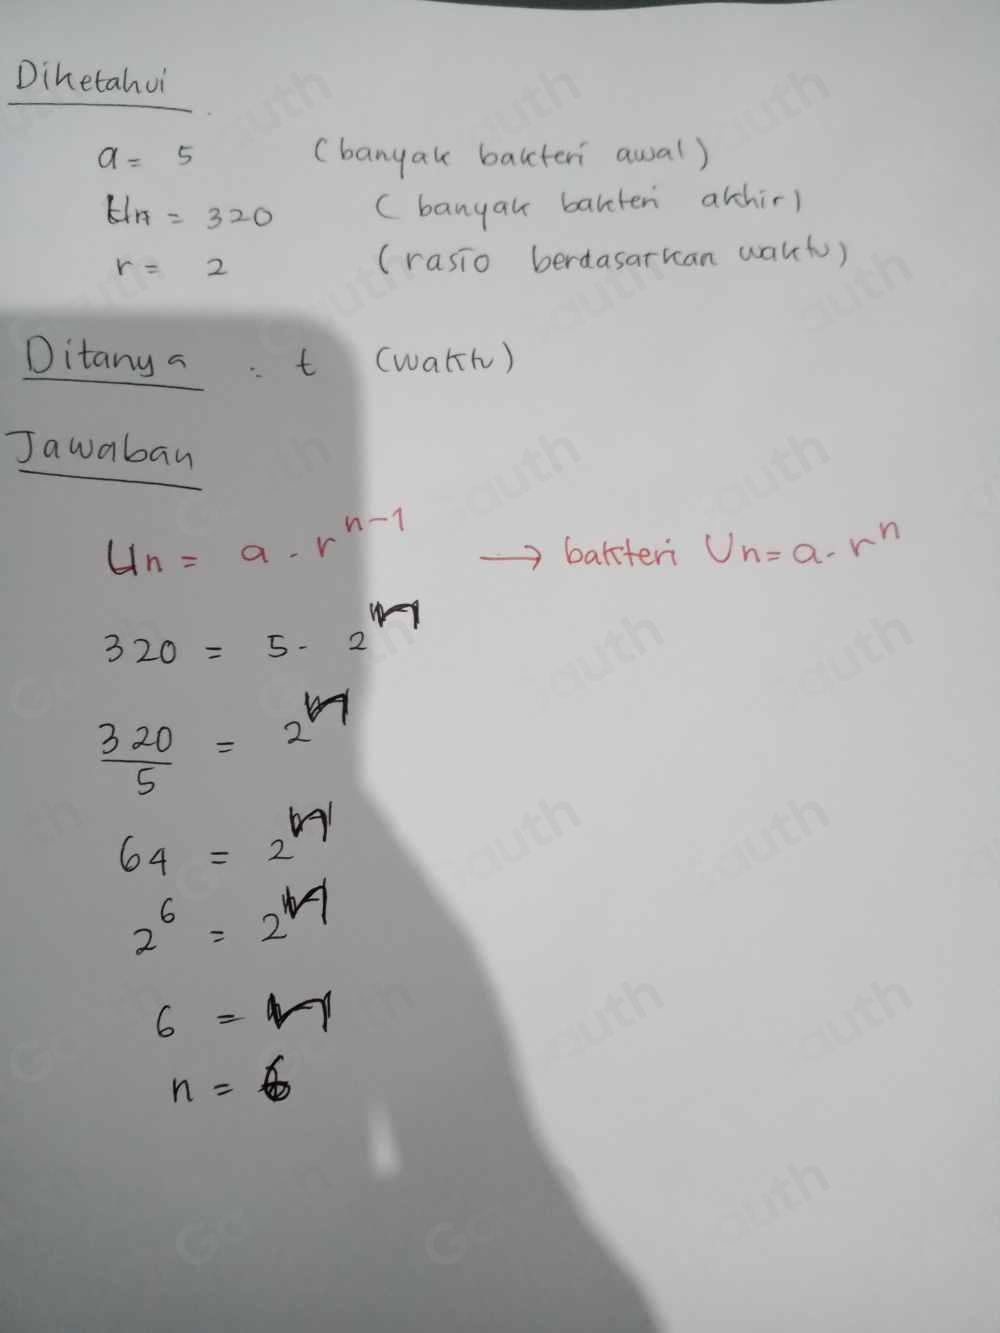 Diketahui
a = 5 (banyak bakteri awal)
Un = 320 (banyak bakteri akhir)
r = 2 (rasio berdasarkan waktu)
Ditanya : t (waktu)
Jawaban
Un = a . r^n-1 → bakteri Un = a . r^n
320 = 5 . 2^n
320/5 = 2^n
64 = 2^n
2^6 = 2^n
6 = n
n = 6